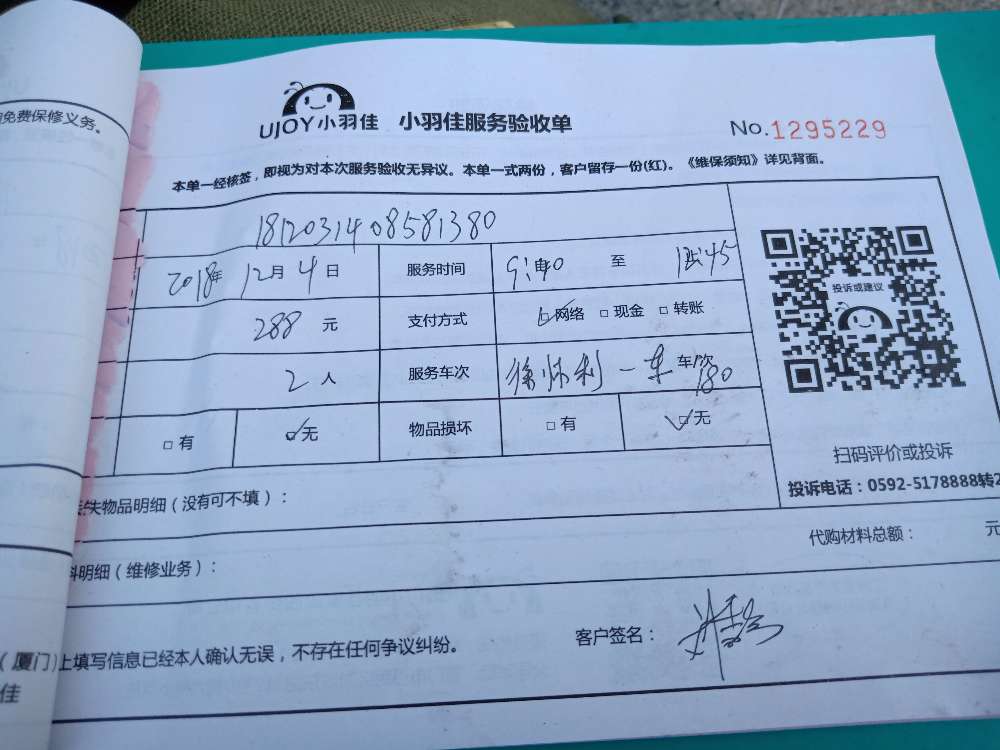 免费保修义务。
UJOY小羽佳 小羽佳服务验收单
No.1295229
本单一经核签，即视为对本次服务验收无异议。本单一式两份，客户留存一份(红)。《维保须知》详见背面。
1812031408581380
2018年 12月4日 服务时间 至
288 元 支付方式 ☑网络 □现金 □转账
2人 服务车次 一车 车/次
180
□有 ☑无 物品损坏 □有 ☑无
投诉或建议
扫码评价或投诉
投诉电话：0592-5178888转2
失物品明细（没有可不填）：
代购材料总额： 元
料明细（维修业务）：
客户签名：
上填写信息已经本人确认无误，不存在任何争议纠纷。
（厦门）
佳